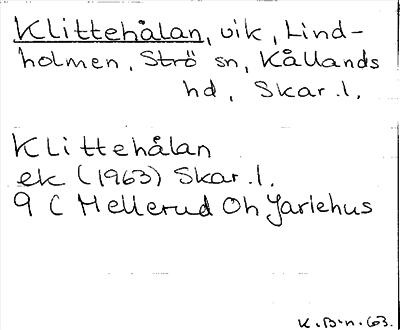 Klittehålan, vik, Lind-
holmen, Strö sn, Kållands
hd, Skar.l.
Klittehålan
ek (1963) Skar.l.
9 C Mellerud Oh Jariehus
K.B-n. 63.